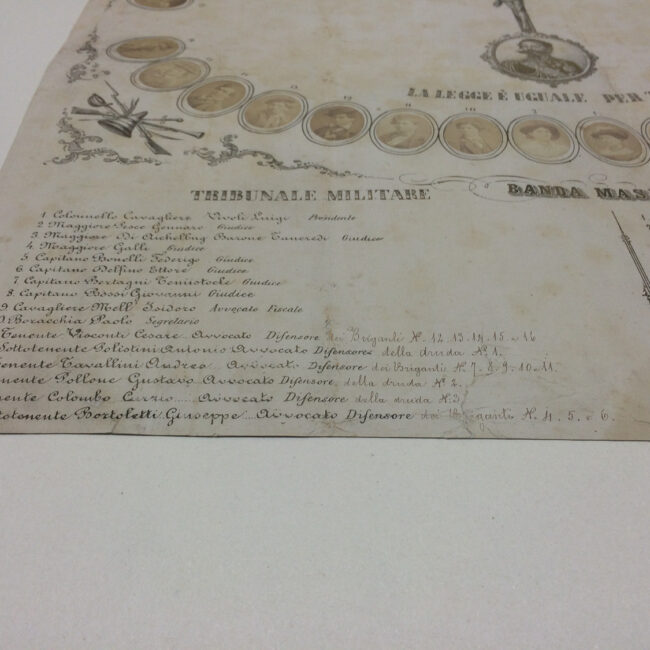 LA LEGGE È UGUALE PER
TRIBUNALE MILITARE
BANDA MAS
1 Colonnello Cavagliere Vivoli Luigi Presidente
2 Maggiore Pesce Gennaro Giudice
3 Maggiore Di Aichelbug Barone Tancredi Giudice
4 Maggiore Galli Giudice
5 Capitano Bonelli Federigo Giudice
6 Capitano Delfino Ettore Giudice
7 Capitano Bertagni Temistocle Giudice
8. Capitano Bossi Giovanni Giudice
9. Cavagliere Mell' Isidoro Avvocato Fiscale
Boracchia Paolo Segretario
Tenente Visconti Cesare Avvocato Difensore dei Briganti N. 12. 13. 14. 15. e 16
Sottotenente Polistini Antonio Avvocato Difensore della druda N. 1.
Tavallini Andrea Avvocato Difensore dei Briganti N. 7. 8. 9. 10. 11.
Pollone Gustavo Avvocato Difensore della druda N. 2.
Colombo Avvocato Difensore della druda N. 3
Bortoletti Giuseppe Avvocato Difensore dei Briganti N. 4. 5. e 6.